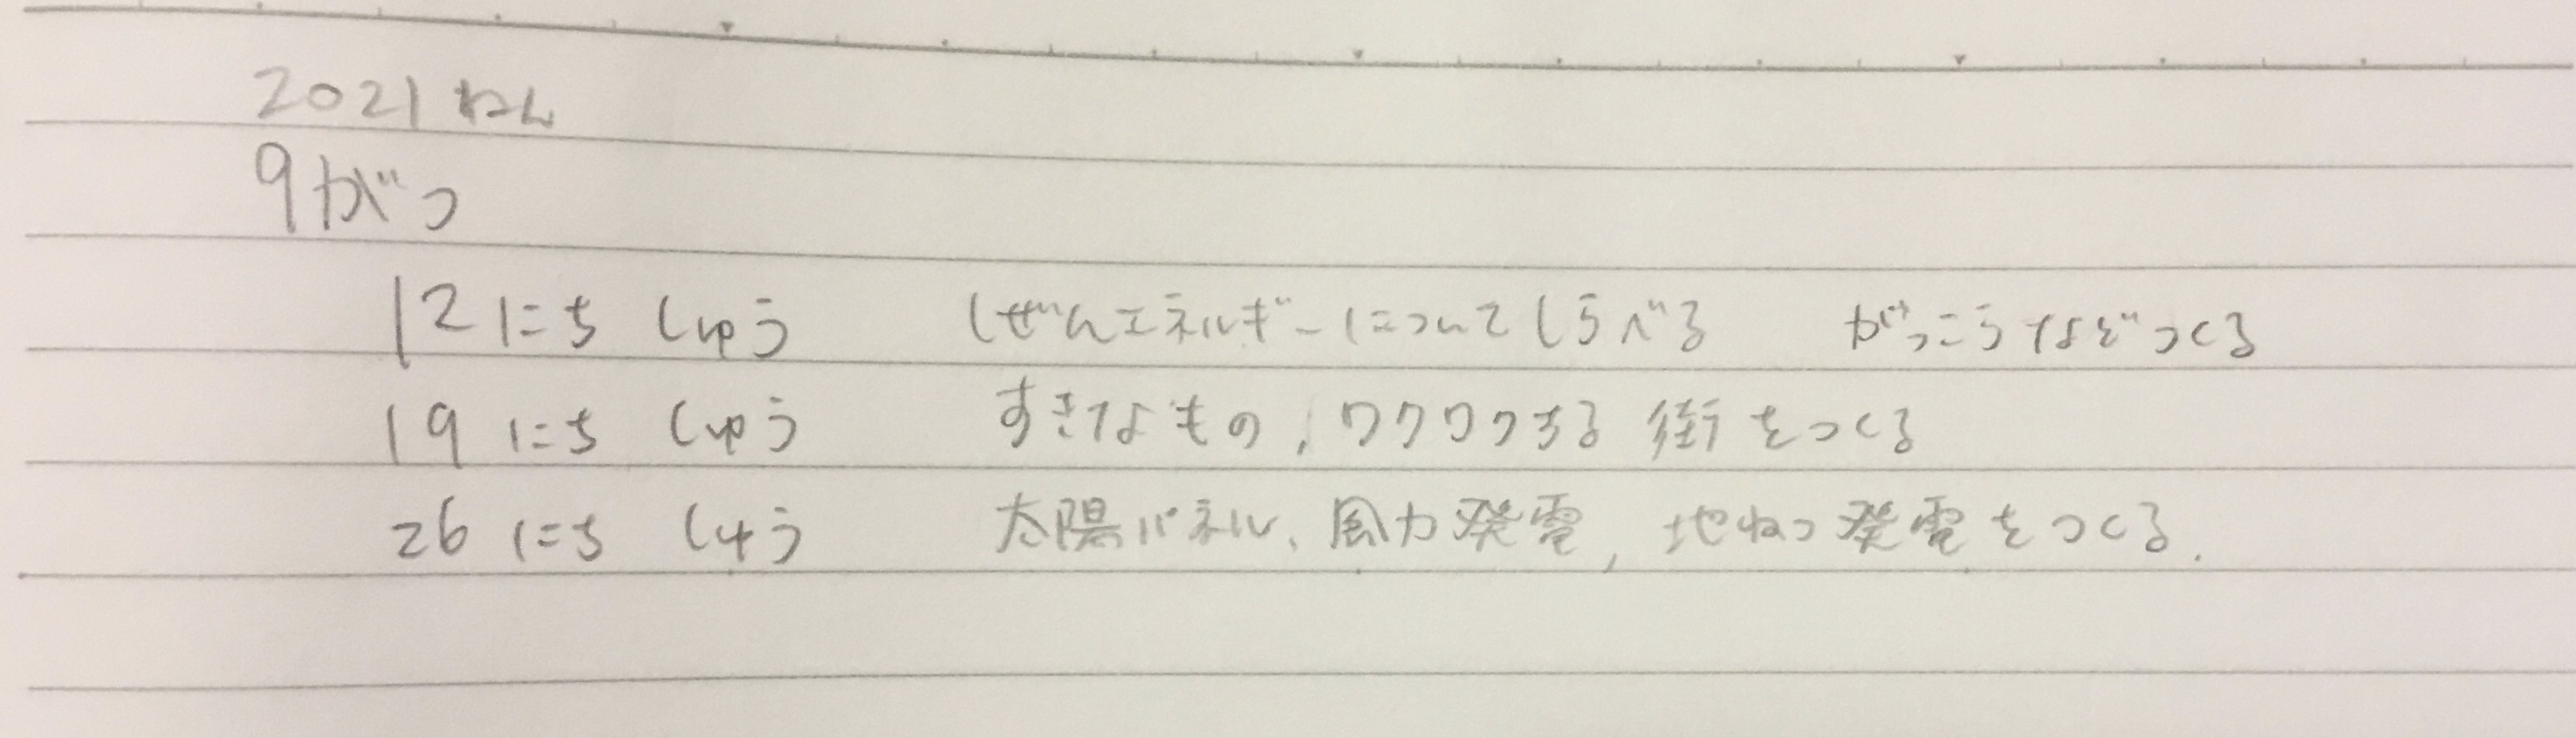 2021 ねん
9がつ
12にち しゅう しぜんエネルギーについてしらべる がっこうなどつくる
19にち しゅう すきなもの、ワクワクする 街をつくる
26にち しゅう 太陽パネル、風力発電、地ねつ発電をつくる.